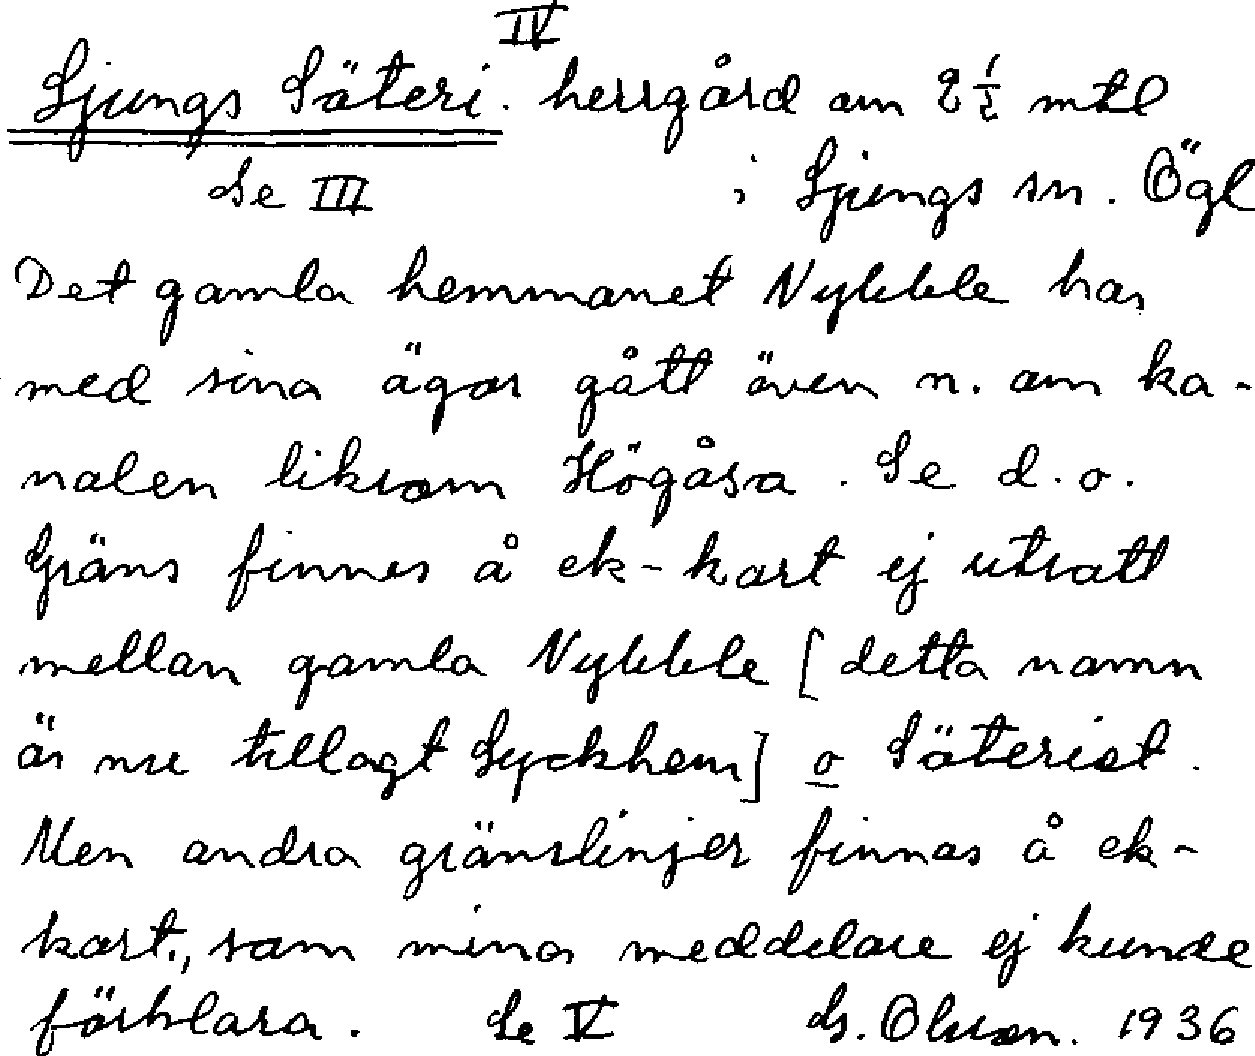 IV
Ljungs Säteri. herrgård om 2 1/2 mtl
Se III i Ljungs sn. Ögl
Det gamla hemmanet Nykkle har
med sina ägor gått även n. om ka-
nalen liksom Högåsa. Se d. o.
Gräns finnes å ek-kart ej utsatt
mellan gamla Nykkle [detta namn
är nu tillagt Lyckhem] o Säteriet.
Men andra gränslinjer finnas å ek-
kart., som mina meddelare ej kunde
förklara. Se V G. Olson. 1936